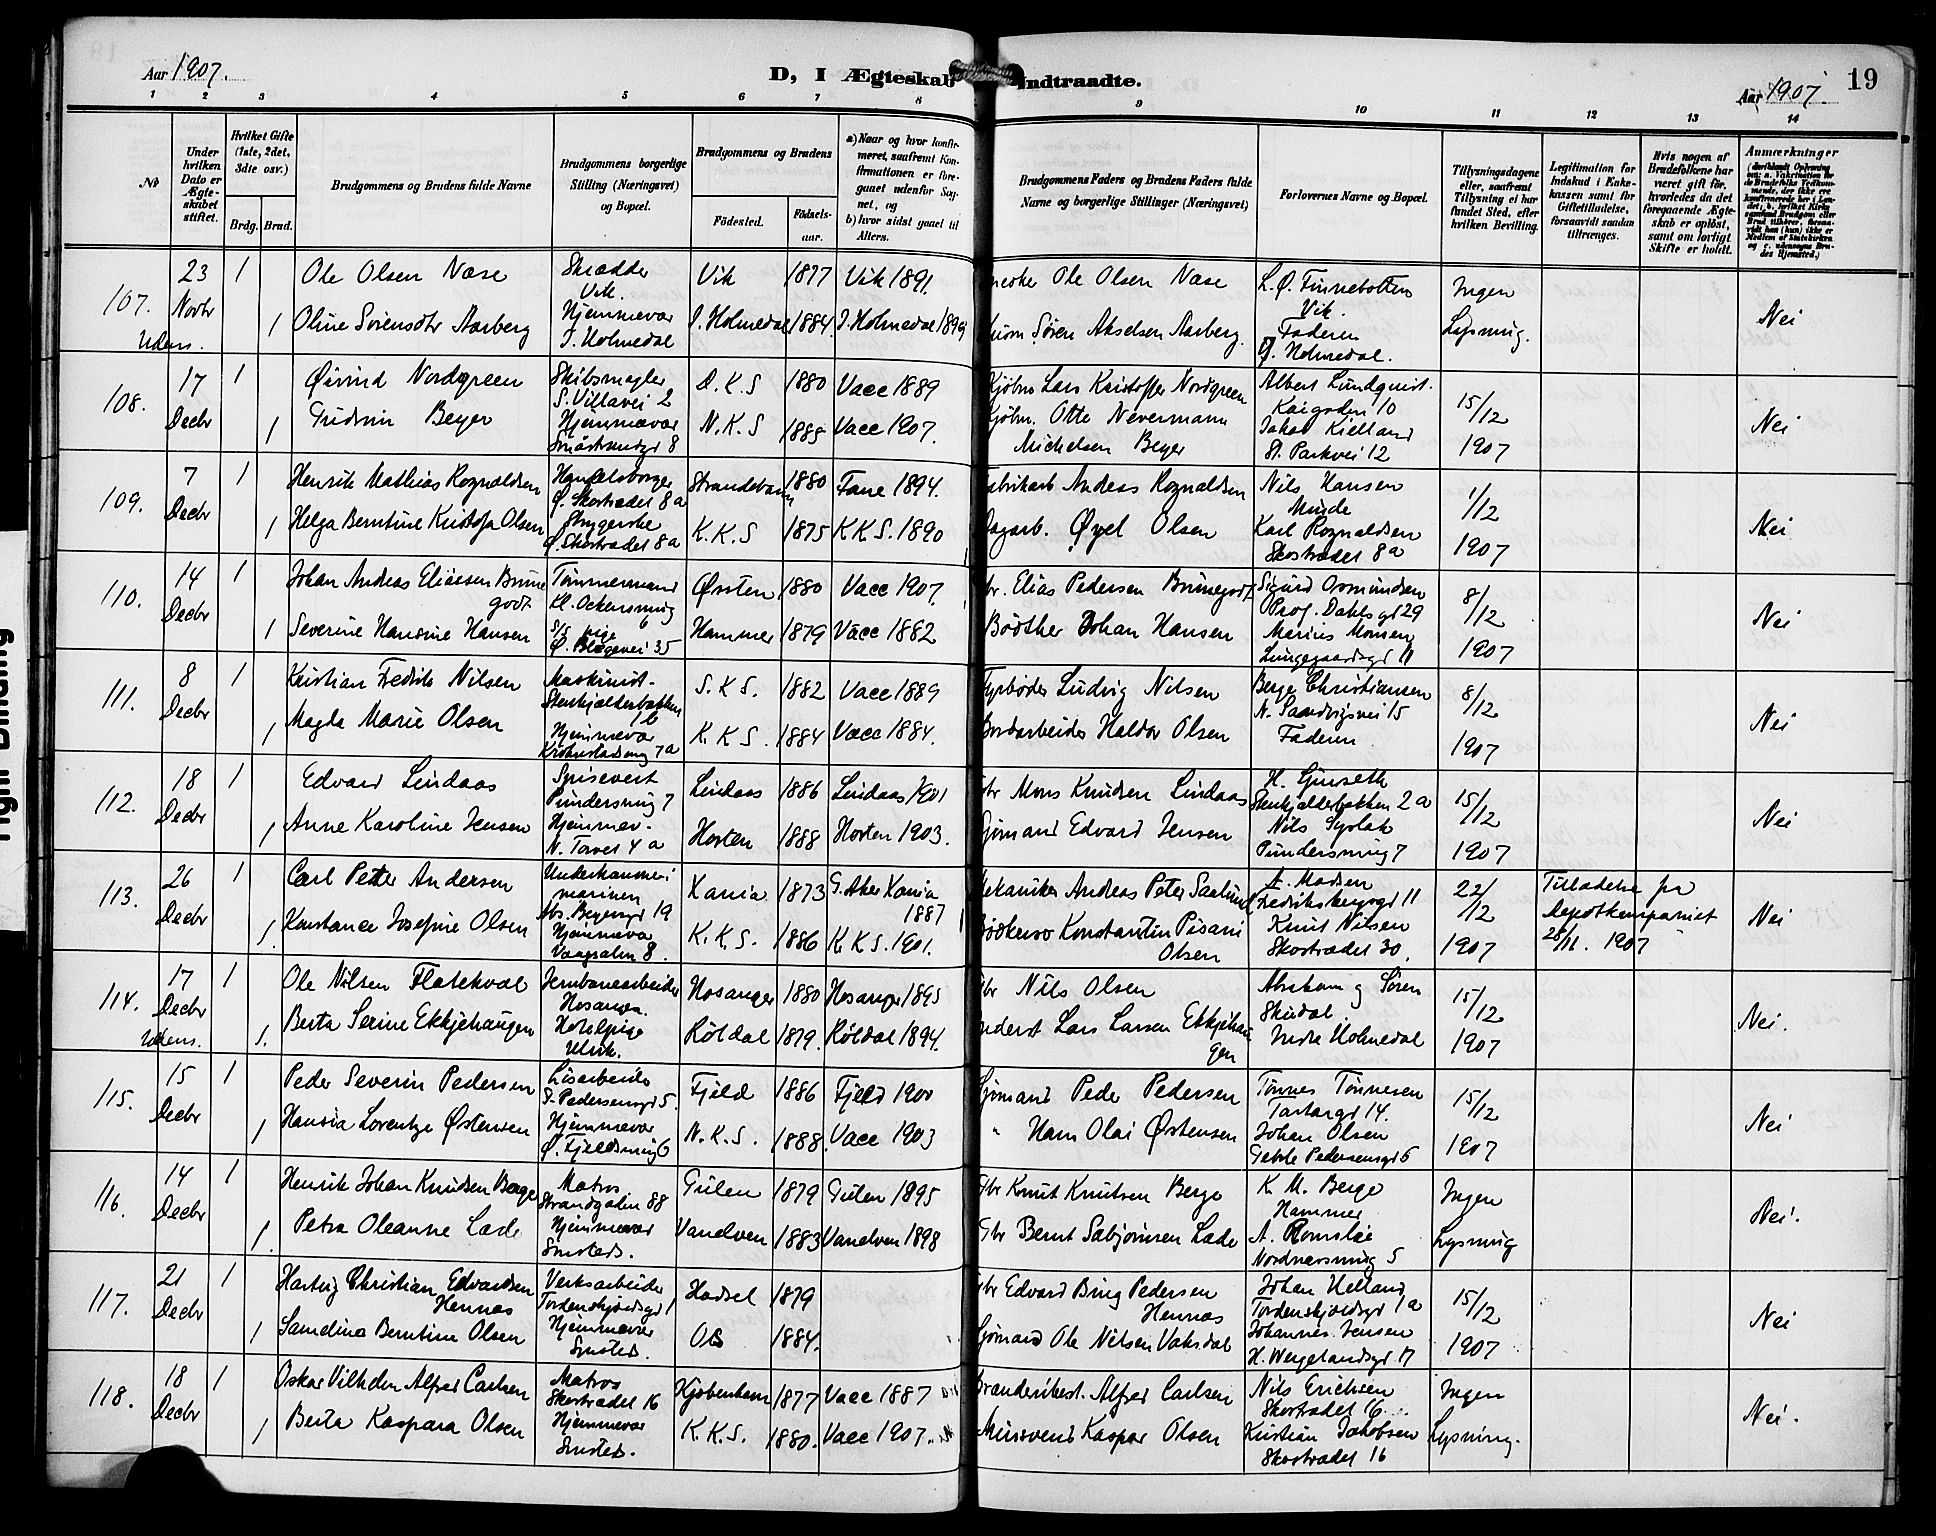 Aar 1907.
D, I Ægteskab Indtraadte.
Aar 1907.
19
1 2 3 4 5 6 7 8 9 10 11 12 13 14
No
Under hvilken Dato er Ægteskabet stiftet.
Hvilket Gifte (1ste, 2det, 3die osv.)
Brdg. Brud.
Brudgommens og Brudens fulde Navne
Brudgommens borgerlige Stilling (Næringsvei) og Bopæl.
Brudgommens og Brudens
Fødested.
Fødselsaar.
a) Naar og hvor konfirmeret, saafremt Konfirmationen er foregaaet udenfor Sognet, og
b) hvor sidst gaaet til Alters.
Brudgommens Faders og Brudens Faders fulde Navne og borgerlige Stillinger (Næringsvei)
Forlovernes Navne og Bopæl.
Tillysningsdagene eller, saafremt Tillysning ei har fundet Sted, efter hvilken Bevilling.
Legitimation for Indskud i Enkekassen samt for Giftetilladelse, forsaavidt saadan tiltrænges.
Hvis nogen af Brudefolkene har været gift før, hvorledes da det foregaaende Ægteskab er opløst, samt om lovligt Skifte er holdt.
Anmærkninger
107. 23 Novbr 1 Ole Olsen Nase Skrædder Vik. Vik 1877 Vik 1891. Ole Olsen Nase L. Ø. Finnebotten Vik. Ingen
Udens. 1 Oline Sørensdtr Aarberg Hjemmevær I. Holmedal I. Holmedal 1884. I. Holmedal Søren Akselsen Aarberg. Faderen I. Holmedal. Lysning. Nei
108. 17 Decbr 1 Øivind Nordgreen Skibsmægler S. Villavei 2 D.K.S 1880 Vacc 1889 Kjøbm Lars Kristoffer Nordgreen Albert Lundquist. Kaigaden 10 15/12
1 Gudrun Beyer Hjemmevær Smaastrandgd 8 N.K.S 1885 Vacc 1907. Kjøbm. Otto Nevermann Michelsen Beyer Jakob Kielland St. Parkvei 12 1907 Nei
109. 7 Decbr 1 Henrik Mathias Rognaldsen Handelsborger Ø. Skostrædet 8a Strandebarm 1880 Fane 1894. Fabrikarb Andreas Rognaldsen Nils Hansen Minde 1/12
1 Helga Berntine Kristofa Olsen Strygerske Ø. Skostrædet 8a K.K.S 1875 K.K.S. 1890 Dagarb. Øyel Olsen Karl Rognaldsen Skostrædet 8a 1907 Nei
110. 14 Decbr 1 Johan Andreas Eliassen Brunegodt Tømmermand Kl. Ockensmug 6 Ørsten 1880 Vacc 1907. Gbr. Elias Pedersen Brunegodt Sigurd Osmundsen Prof. Dahls gd 29 8/12
1 Severine Hansine Hansen pige Ø. Blegevei 35 Hammer 1879 Vacc 1882 Bødther Johan Hansen Marius Monsen Lungegaardsgd 11 1907 Nei
111. 8 Decbr 1 Kristian Fredrik Nilsen Maskinist Stenkjælderbakken 1b S.K.S. 1882 Vacc 1889 Fyrbøder Ludvig Nilsen Berge Christiansen N. Sandvigsvei 15 8/12
1 Magda Marie Olsen Hjemmevær 7a K.K.S. 1884 Vacc 1884. Jordarbeider Haldor Olsen Faderen 1907 Nei
112. 18 Decbr 1 Edvard Lindaas Spisevert Pundersmug 7 Lindaas 1886 Lindaas 1901 Gbr Mons Knudsen Lindaas H. Gjurseth Stenkjælderbakken 2a 15/12
1 Anne Karoline Jensen Hjemmev. N. Torvet 4a Horten 1888 Horten 1903. Sjømand Edvard Jensen Nils Pundersmug 7 1907 Nei
113. 26 Decbr 1 Carl Petter Andersen Underkanoner i marinen Abs. Beyersgd 19 Xania 1873 G. Aker Xania 1887 Mekaniker Andreas Peter A. Madsen Fredriksbergsgd 11 22/12 Tilladelse fra Depotkompaniet 28/11. 1907
1. Konstance Josefine Olsen Hjemmevær Vaagsalm 8. K.K.S. 1886 K.K.S. 1901. Bødkersv Konstantin Pisani Olsen Knut Nilsen Skostrædet 30. 1907 Nei
114. 17 Decbr 1 Ole Nilsen Flatekval Jernbanearbeider Hosanger. Hosanger 1880 Hosanger 1895 Gbr Nils Olsen Abraham og Søren Skudal. 15/12
Udens. 1. Berta Serine Ekkjehaugen Hotelpige Ulvik. Røldal 1879. Røldal 1894. Inderst Lars Larsen Ekkjehaugen Indre Holmedal 1907 Nei.
115. 15 Decbr 1 Peder Severin Pedersen Løsarbeider G. Pedersensgd 5. Fjeld 1886 Fjeld 1900 Sjømand Peder Pedersen Tønnes Tønnesen Tartargd 14. 15/12
1 Hansia Lorentze Østensen Hjemmevær Ø. Fjeldsmug 6 N.K.S. 1888. Vacc 1903 " Hans Olai Østensen Johan Olsen Gabrle Pedersensgd 5 1907 Nei
116. 14 Decbr 1 Henrik Johan Knudsen Berge Matros Strandgaden 88 Gulen 1879 Gulen 1895 Gbr Knut Knutsen Berge K. M. Berge Hammer Ingen
1. Petra Oleanne Lade Hjemmevær Smsteds. Vandven 1883 Vandven 1898 Gbr Bernt Sabjørnsen Lade A. Romslo Nordnæssmug 5 Lysning Nei.
117. 21 Decbr 1 Hartvig Christian Edvardsen Hennæs Verksarbeider Tordenskjoldsgd 1 Hadsel 1879 Gbr Edvard Bing Pedersen Hennæs Johan Helland Tordenskjoldsgd 1a 15/12
1 Samdina Berntine Olsen Hjemmevær Smsted. Os 1884. Sjømand Ole Nilsen Vaksdal Johannes Jensen H. Wergelandsgd 17 1907 Nei
118. 18 Decbr 1 Oskar Vilhelm Alfred Carlsen Matros Skostrædet 16 Kjøbenhavn 1877 Vacc 1887 Alfred Carlsen Nils Erichsen Skostrædet 16. Ingen
1 Berta Kaspara Olsen Hjemmevær Smsted. K.K.S. 1880. Vacc 1907. Murersvend Kaspar Olsen Kristian Jakobsen Skostrædet 16 Lysning. Nei.
Right Binding